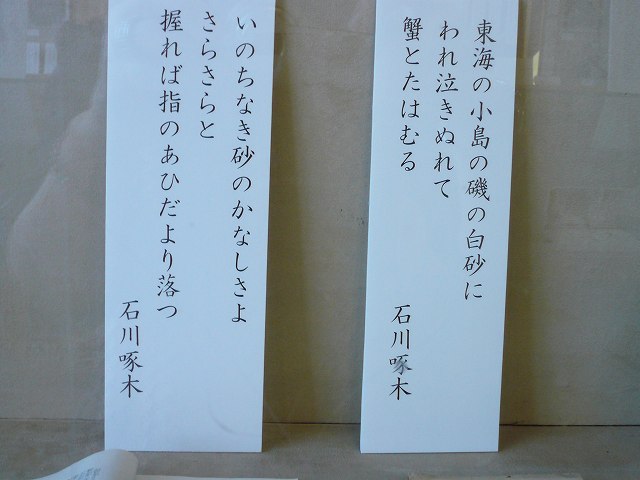 東海の小島の磯の白砂に
われ泣きぬれて
蟹とたはむる
石川啄木
いのちなき砂のかなしさよ
さらさらと
握れば指のあひだより落つ
石川啄木